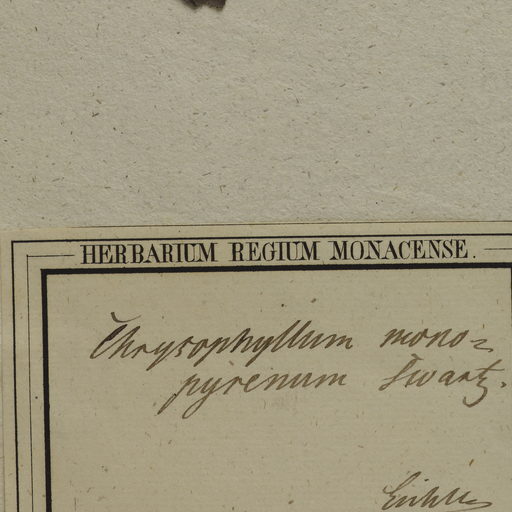 HERBARIUM REGIUM MONACENSE.
Chrysophyllum mono=
pyrenum Swartz.